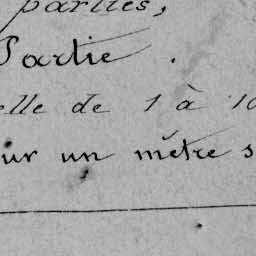 parties,
Partie.
elle de 1 à 10
ur un mètre s